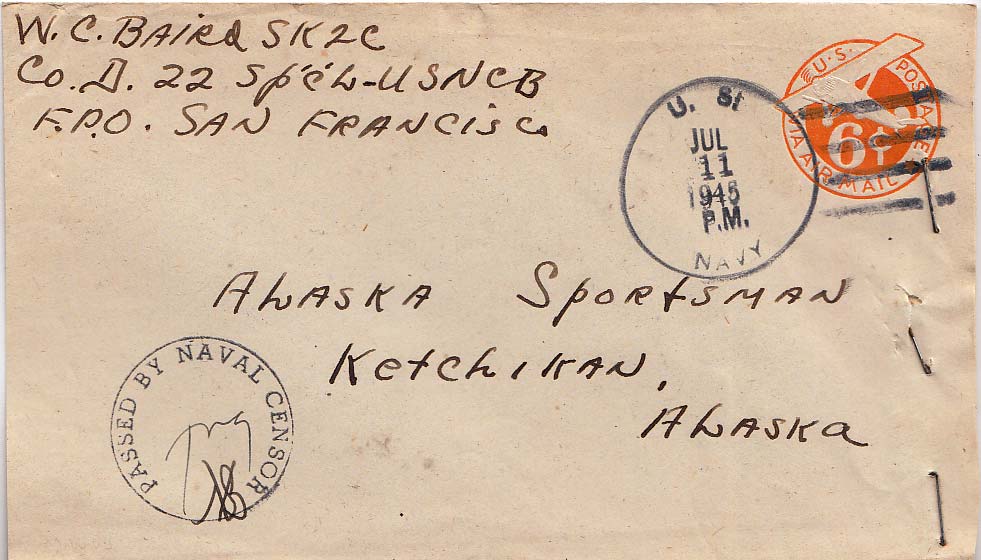 W. C. Baird SK2C
Co. D. 22 Sp'c'l-USNCB
F.P.O. San Francisco
U.S. POSTAGE
6¢
VIA AIR MAIL
U. S.
JUL
11
1945
P.M.
NAVY
Alaska Sportsman
Ketchikan,
Alaska
PASSED BY NAVAL CENSOR